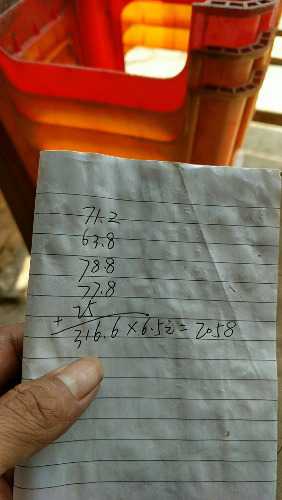 71.2
63.8
78.8
77.8
+ 25
316.6 × 6.5元 = 2058